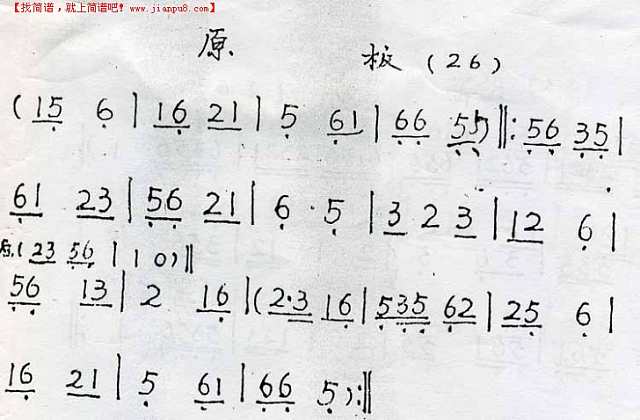 【找简谱，就上简谱吧！www.jianpu8.com】
原 板（26）
( 15 6 | 16 21 | 5 61 | 66 55) ‖: 56 35 |
61 23 | 56 21 | 6 · 5 | 3 2 3 | 12 6 |
( 23 56 | 1 0) ‖
56 13 | 2 16 | (2·3 16 | 535 62 | 25 6 |
16 21 | 5 61 | 66 5) :‖